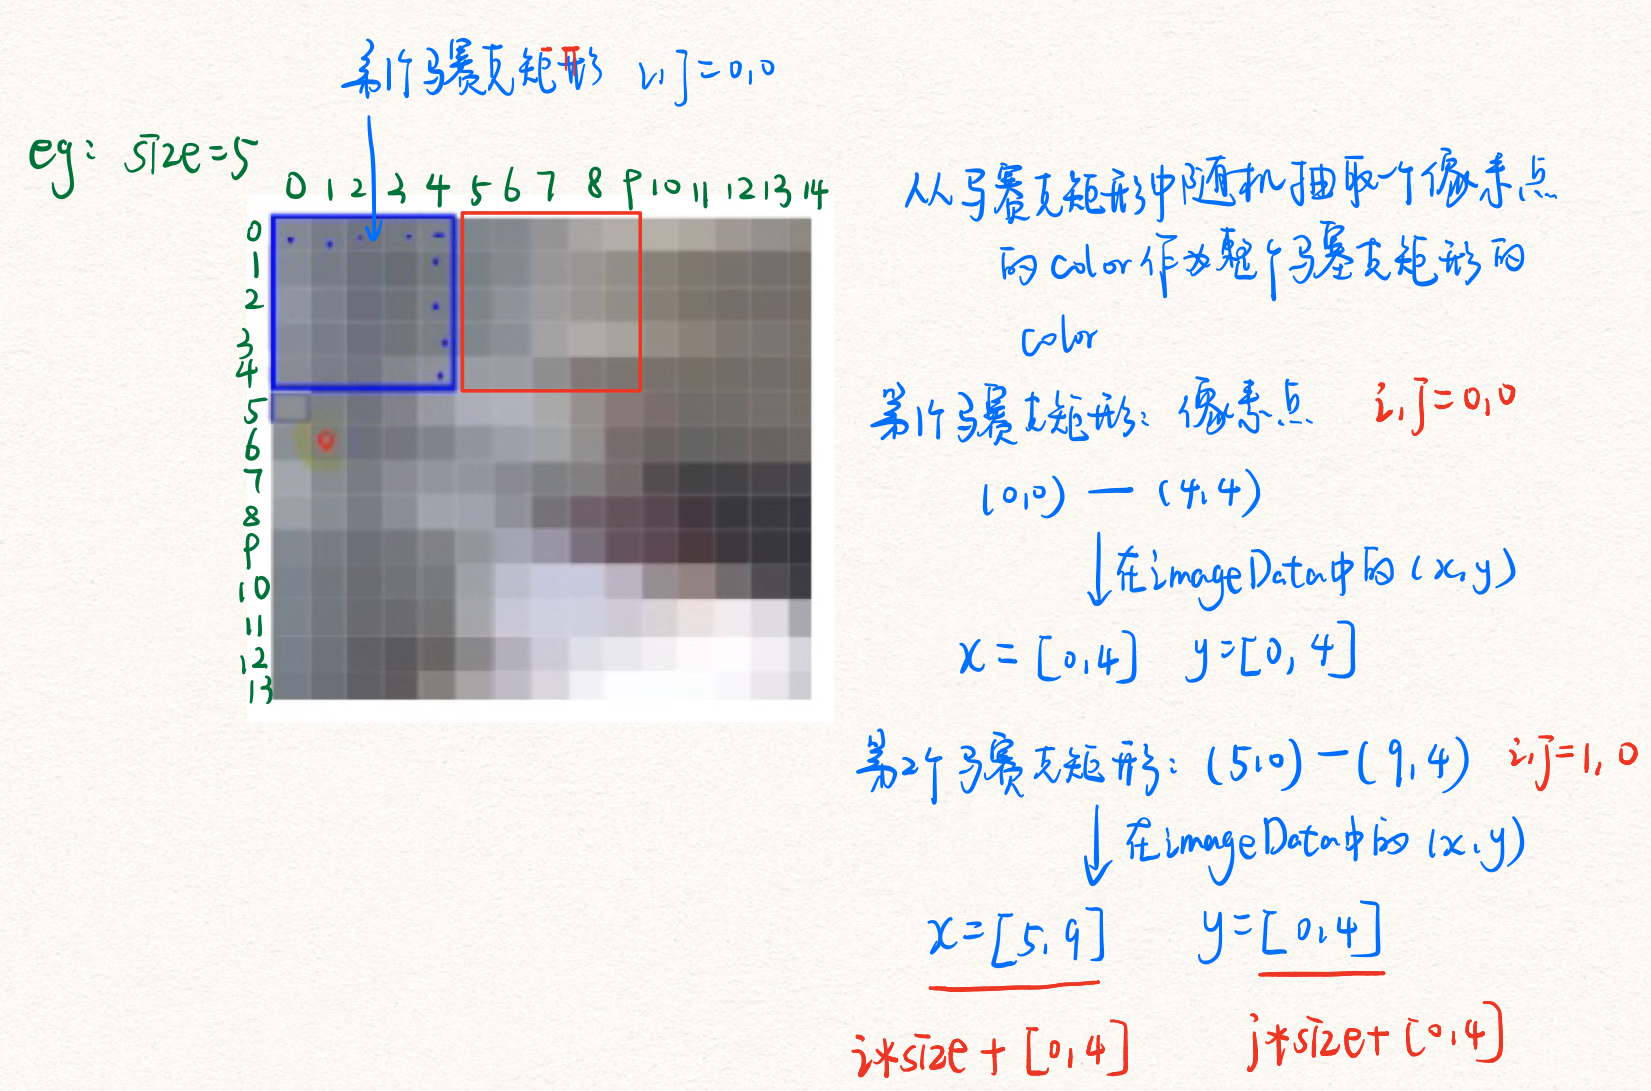 第1个马赛克矩形 i,j=0,0
eg: size=5
0 1 2 3 4 5 6 7 8 9 10 11 12 13 14
0
1
2
3
4
5
6
7
8
9
10
11
12
13
从马赛克矩形中随机抽取一个像素点
的color作为整个马赛克矩形的
color
第1个马赛克矩形: 像素点 i,j=0,0
(0,0) — (4,4)
在imageData中的 (x,y)
x = [0,4] y=[0,4]
第2个马赛克矩形: (5,0) — (9,4) i,j=1,0
在imageData中的 (x,y)
x=[5,9] y=[0,4]
i*size + [0,4] j*size+[0,4]